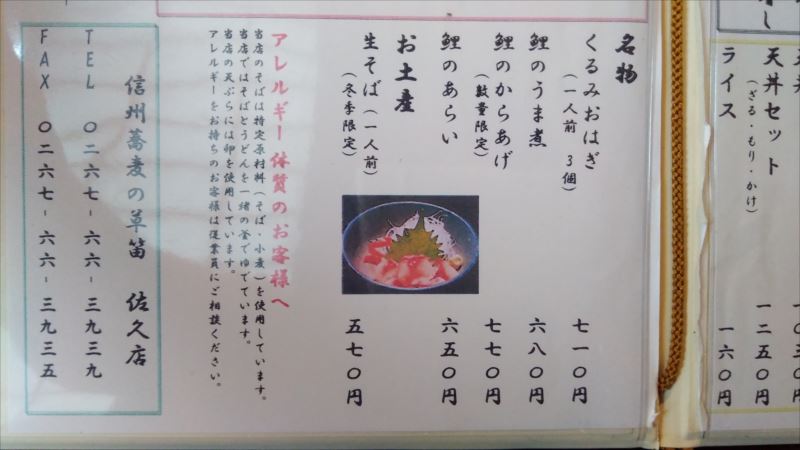 天丼セット
(ざる・もり・かけ)
一二五〇円
ライス
一六〇円
名物
くるみおはぎ
(一人前 3個)
七一〇円
鯉のうま煮
六八〇円
鯉のからあげ
(数量限定)
七七〇円
鯉のあらい
六五〇円
お土産
生そば(一人前)
(冬季限定)
五七〇円
アレルギー体質のお客様へ
当店のそばは特定原材料(そば・小麦)を使用しています。
当店ではそばとうどんを一緒の釜でゆでています。
当店の天ぷらには卵を使用しています。
アレルギーをお持ちのお客様は従業員にご相談ください。
信州蕎麦の草笛 佐久店
TEL 〇二六七-六六-三九三九
FAX 〇二六七-六六-三九三五